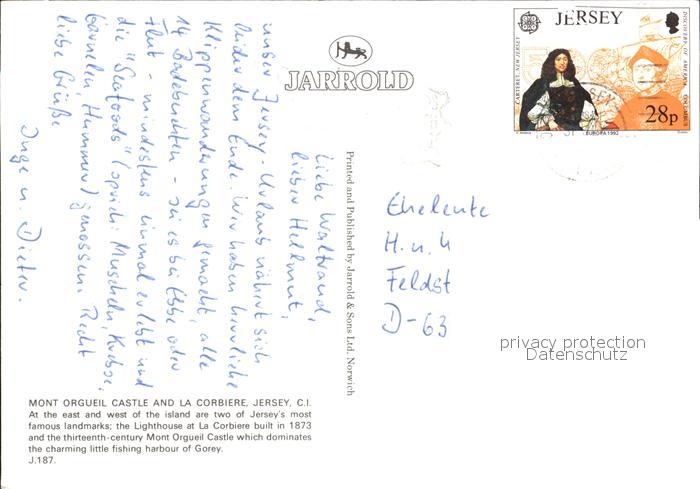 Liebe Waltraud,
lieber Hellmut,
unser Jersey-Urlaub nähert sich
leider dem Ende. Wir haben herrliche
Klippenwanderungen gemacht, alle
14 Badebuchten - sei es bei Ebbe oder
Flut - mindestens einmal erlebt und
die "Seafoods" (sprich: Muscheln, Krebse,
Garnelen, Hummer) genossen. Recht
liebe Grüße
Inge u. Dieter.
JARROLD
Printed and Published by Jarrold & Sons Ltd. Norwich
JERSEY
CARTERET, NEW JERSEY
DISCOVERY OF AMERICA
COLUMBUS
28p
EUROPA 1992
Eheleute
H. u. W
Feldst
D-63
privacy protection
Datenschutz
MONT ORGUEIL CASTLE AND LA CORBIERE, JERSEY, C.I.
At the east and west of the island are two of Jersey's most
famous landmarks; the Lighthouse at La Corbiere built in 1873
and the thirteenth-century Mont Orgueil Castle which dominates
the charming little fishing harbour of Gorey.
J.187.